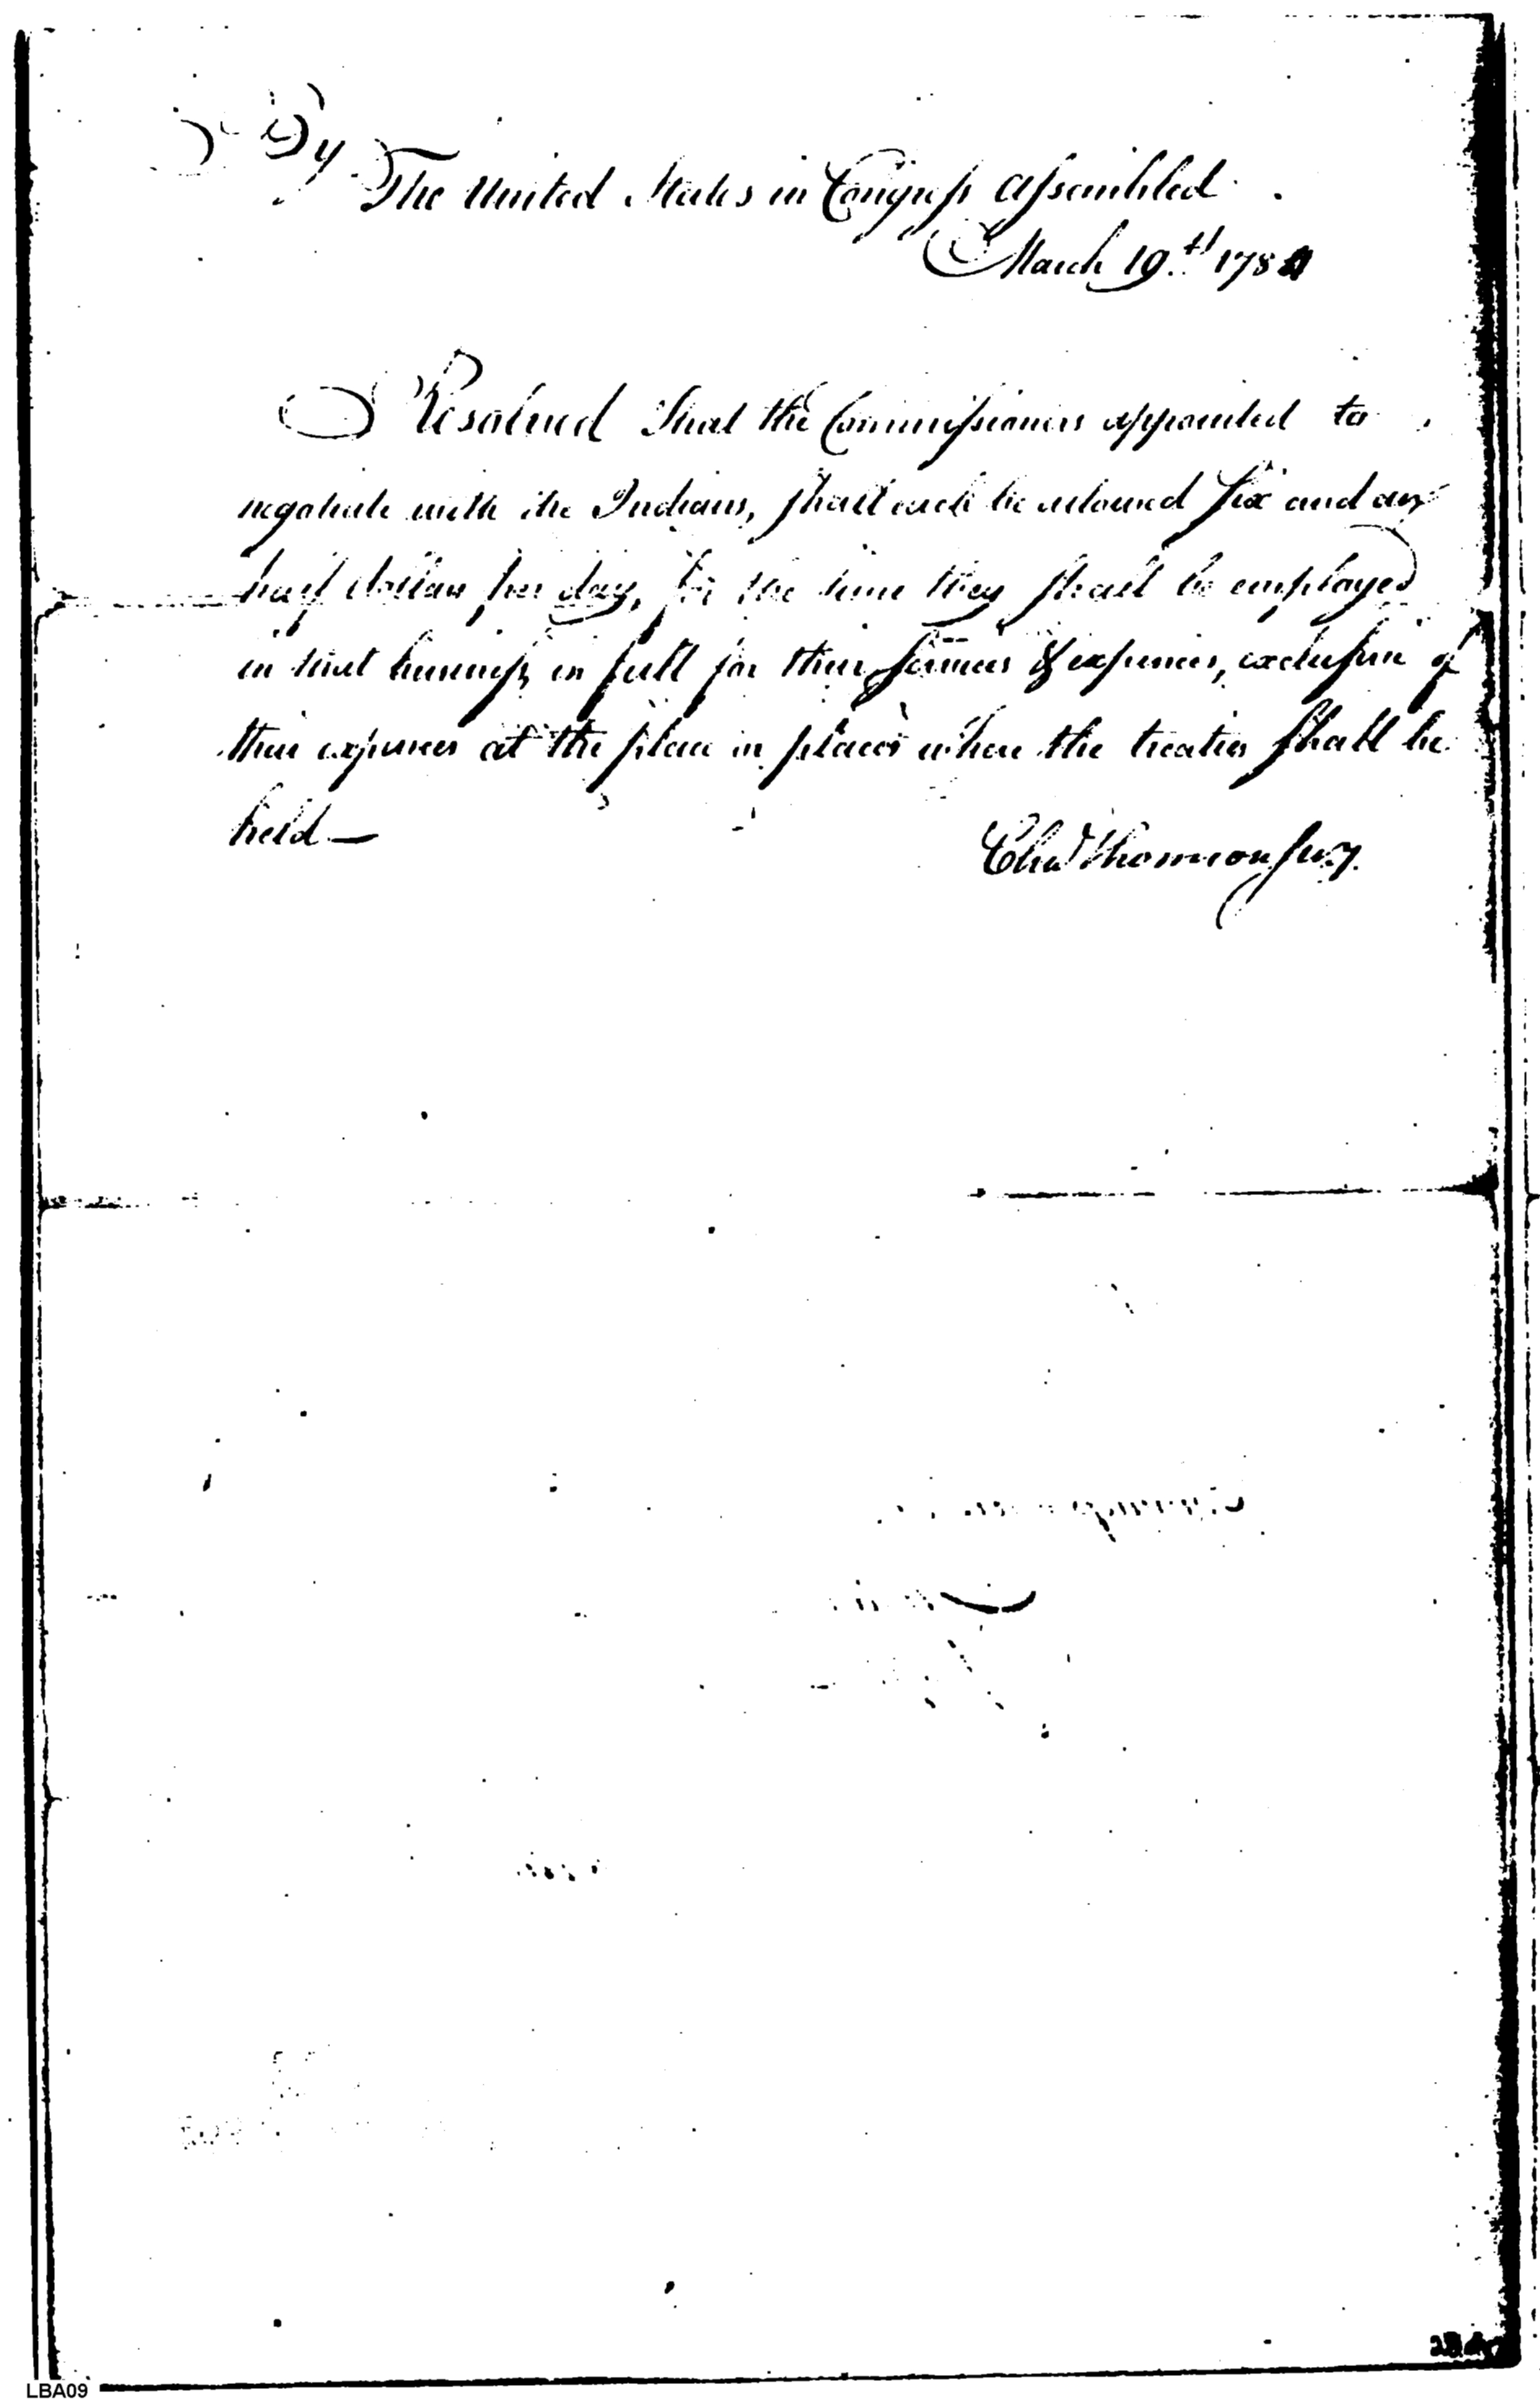 By
The United States in Congress assembled
March 19th 1784
Resolved That the Commissioners appointed to
negotiate with the Indians, shall each be allowed six and an
half dollars per day, for the time they shall be employed
in that business, in full for their services & expences, exclusive of
their expences at the place or places where the treaties shall be
held —
Chas Thomson Secy.
LBA09